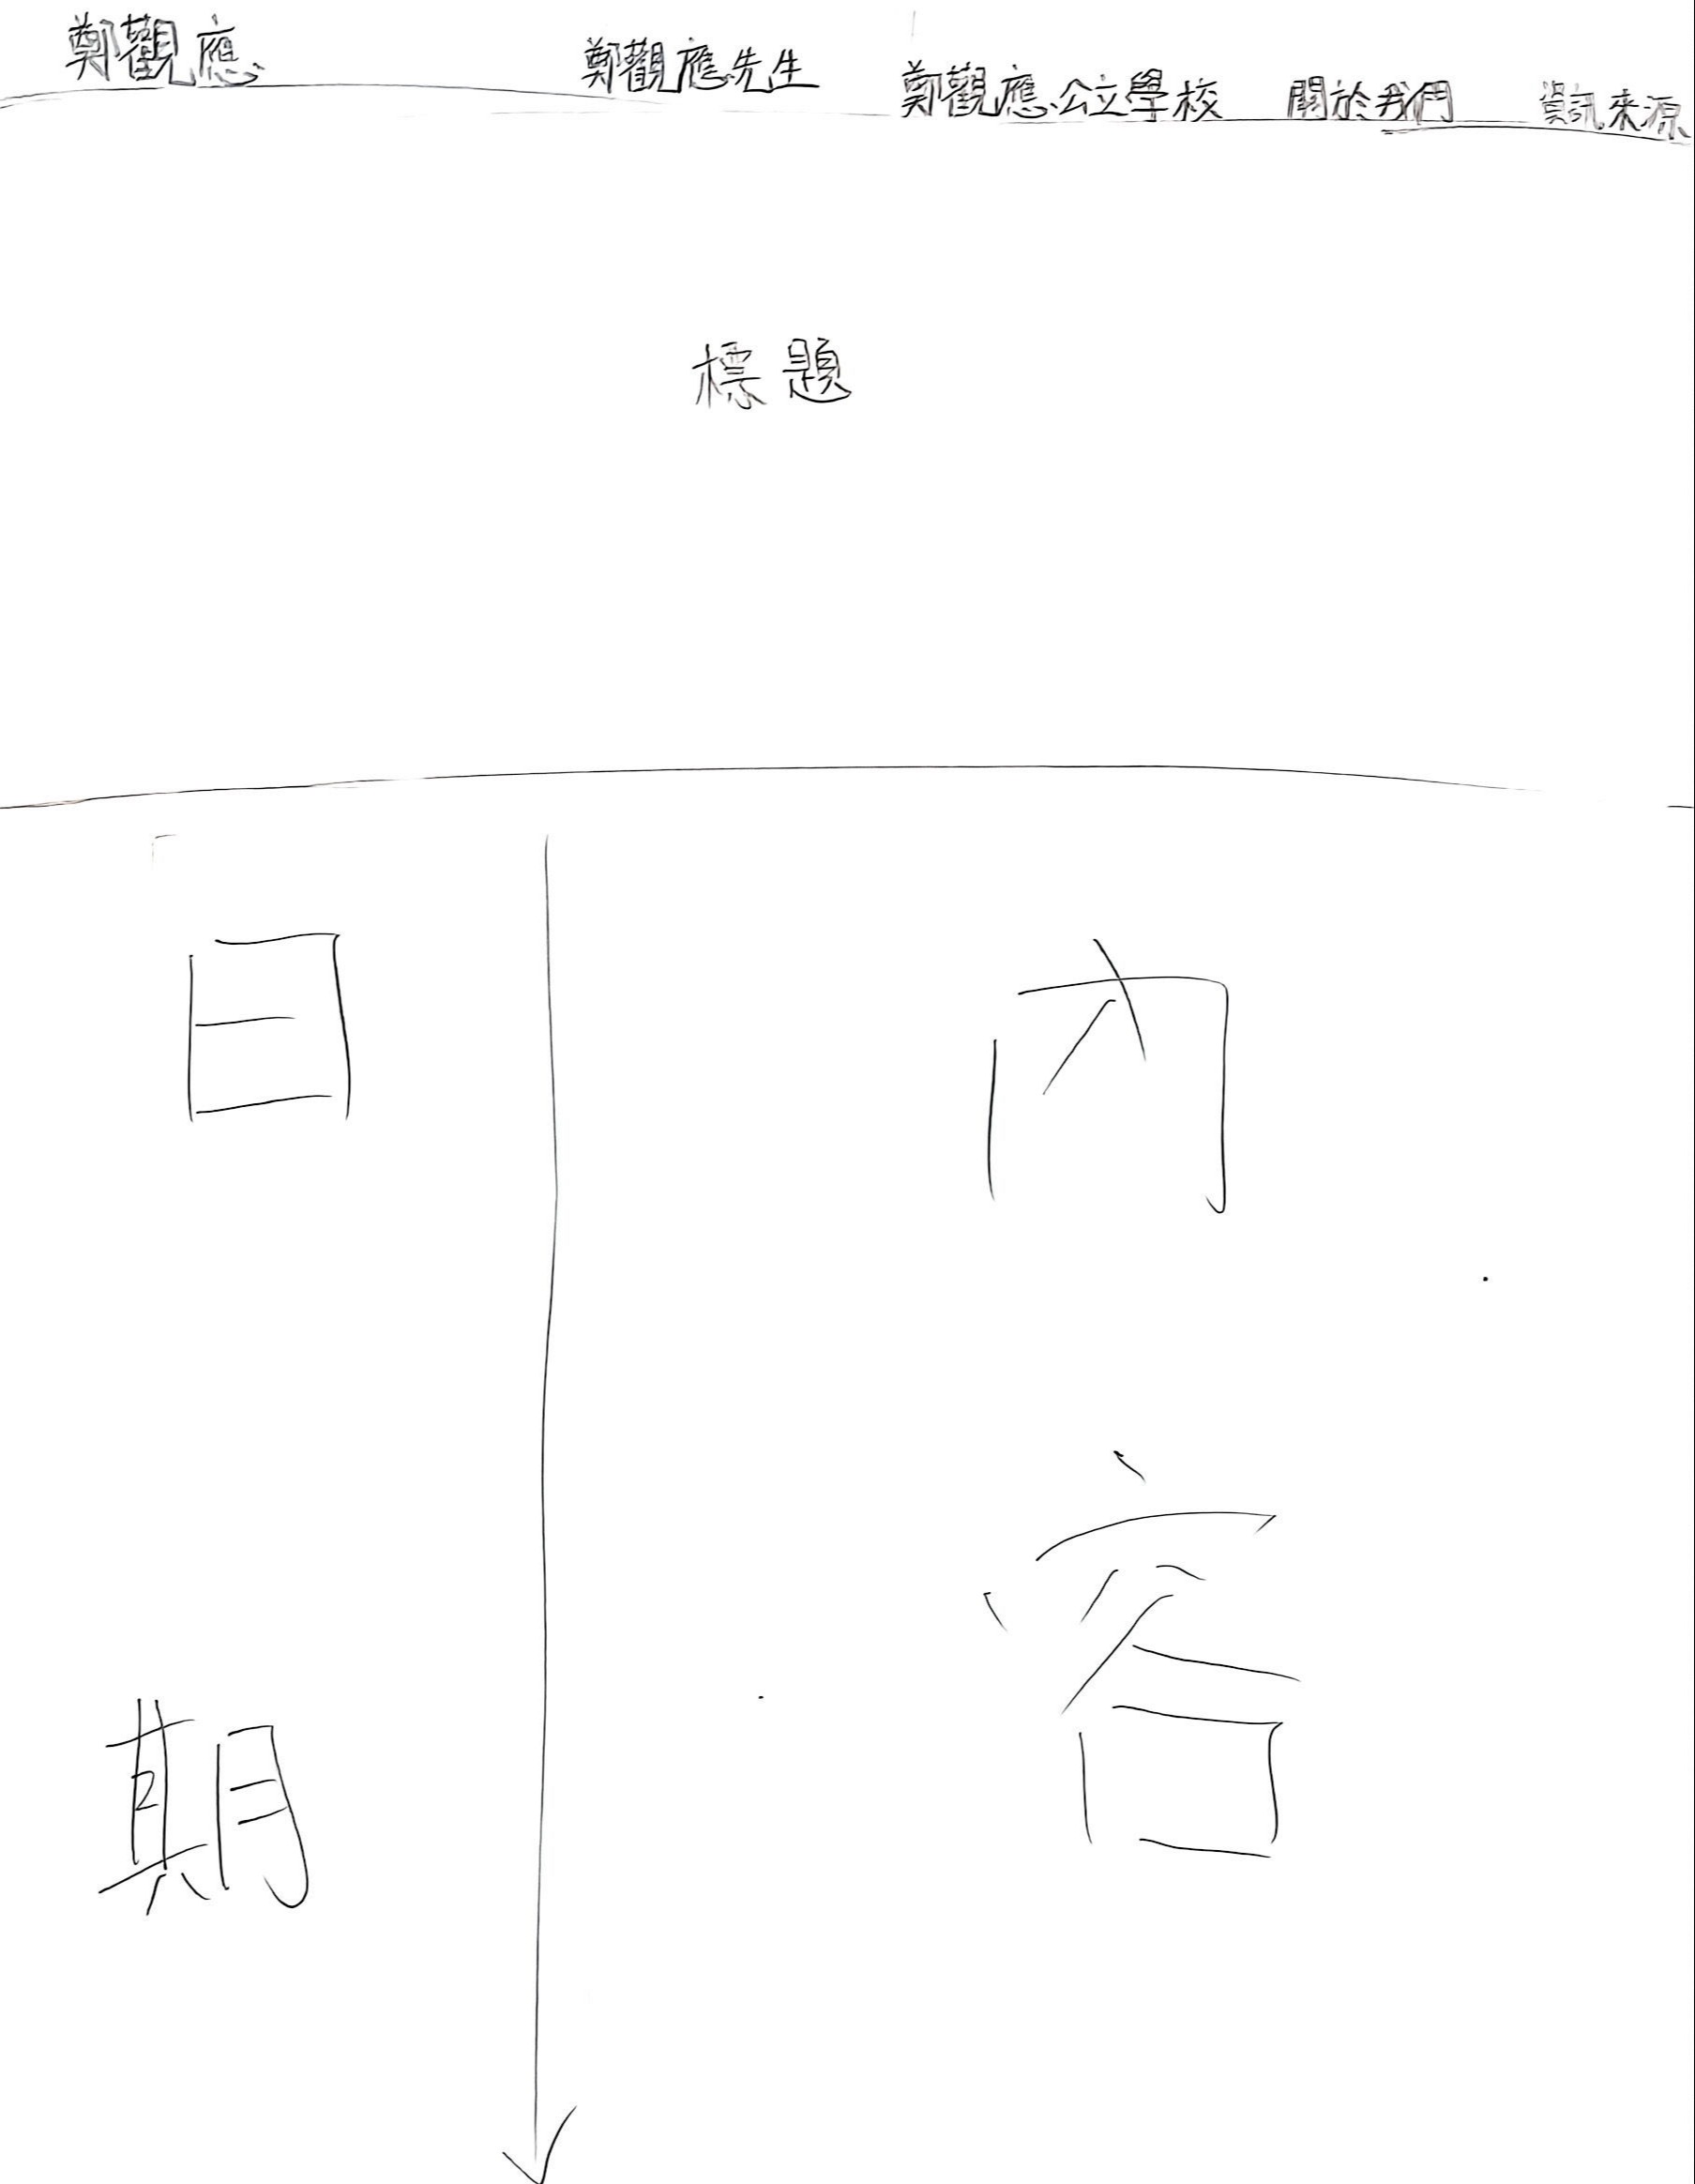 鄭觀應 鄭觀應先生 鄭觀應公立學校 關於我們 資訊來源
標題
日期
內容